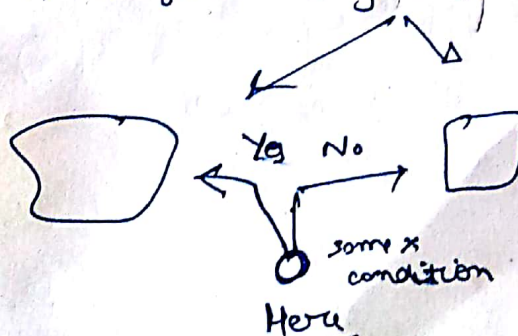 Yes No
some x
condition
Here